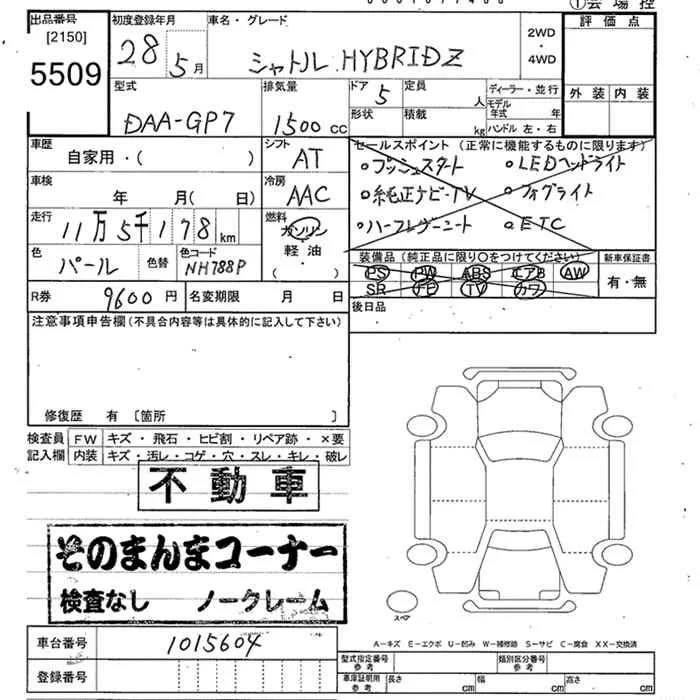 ①会場控
出品番号
[2150]
5509
初度登録年月
28 5月
車名・グレード
シャトル HYBRIDZ
2WD
・
4WD
評価点
外装 内装
型式
DAA-GP7
排気量
1500 cc
ドア 5
形状
定員 人
積載 kg
ディーラー・並行
モデル年式 年
ハンドル 左・右
車歴
自家用・( )
シフト
AT
車検
年 月( 日)
冷房
AAC
走行
11万5千178 km
燃料
ガソリン
軽油
( )
色
パール
色替
色コード
NH788P
セールスポイント(正常に機能するものに限ります)
○プッシュスタート ○LEDヘッドライト
○純正ナビ-TV ○フォグライト
○ハーフレザーシート ○ETC
装備品(純正品に限り○をつけてください)
PS PW ABS エアB AW
SR ナビ TV カワ
新車保証書
有・無
R券 9600円
名変期限 月 日
後日品
注意事項申告欄(不具合内容等は具体的に記入して下さい)
修復歴 有 〔箇所 〕
検査員記入欄
FW キズ・飛石・ヒビ割・リペア跡・×要
内装 キズ・汚レ・コゲ・穴・スレ・キレ・破レ
不動車
そのまんまコーナー
検査なし ノークレーム
スペア
A-キズ E-エクボ U-凹み W-補修跡 S-サビ C-腐食 XX-交換済
車台番号
1015604
登録番号
型式指定番号 参考
類別区分番号 参考
車庫証明用 参考
長さ cm
幅 cm
高さ cm